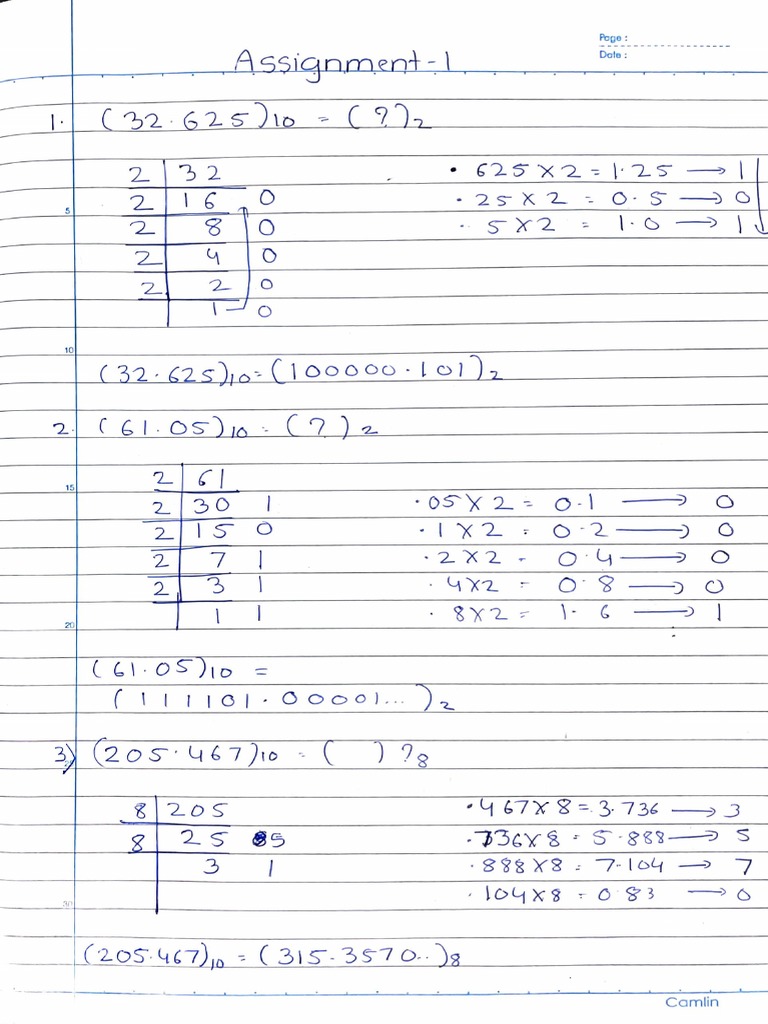 Page :
Date :
Assignment-1
1. (32.625)10 = (?)2
2 | 32
2 | 16 0
2 | 8 0
2 | 4 0
2 | 2 0
1 0
.625 X 2 = 1.25 → 1
.25 X 2 = 0.5 → 0
.5 X 2 = 1.0 → 1
5
10
(32.625)10 = (100000.101)2
2. (61.05)10 = (?)2
2 | 61
2 | 30 1
2 | 15 0
2 | 7 1
2 | 3 1
1 1
.05 X 2 = 0.1 → 0
.1 X 2 = 0.2 → 0
.2 X 2 = 0.4 → 0
.4 X 2 = 0.8 → 0
.8 X 2 = 1.6 → 1
15
20
(61.05)10 =
(111101.00001...)2
3) (205.467)10 = ( ) ?8
8 | 205
8 | 25 5
3 1
.467 X 8 = 3.736 → 3
.736 X 8 = 5.888 → 5
.888 X 8 = 7.104 → 7
.104 X 8 = 0.83 → 0
30
(205.467)10 = (315.3570..)8
Camlin